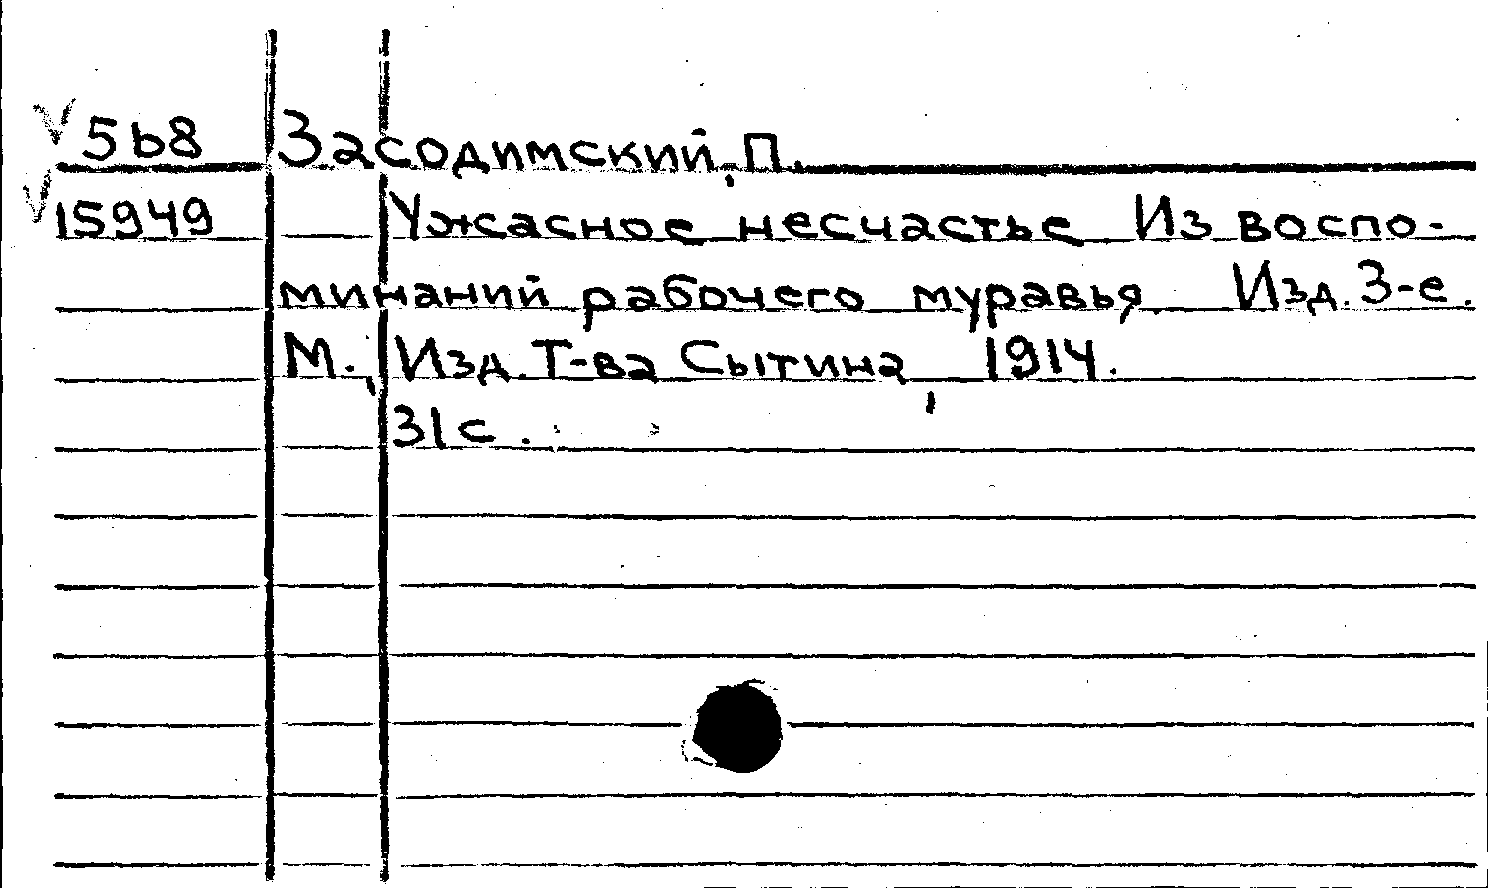 5b8 Засодимский, П.
15949 Ужасное несчастье Из воспо-
минаний рабочего муравья Изд. 3-е.
М., Изд. Т-ва Сытина, 1914.
31 с.